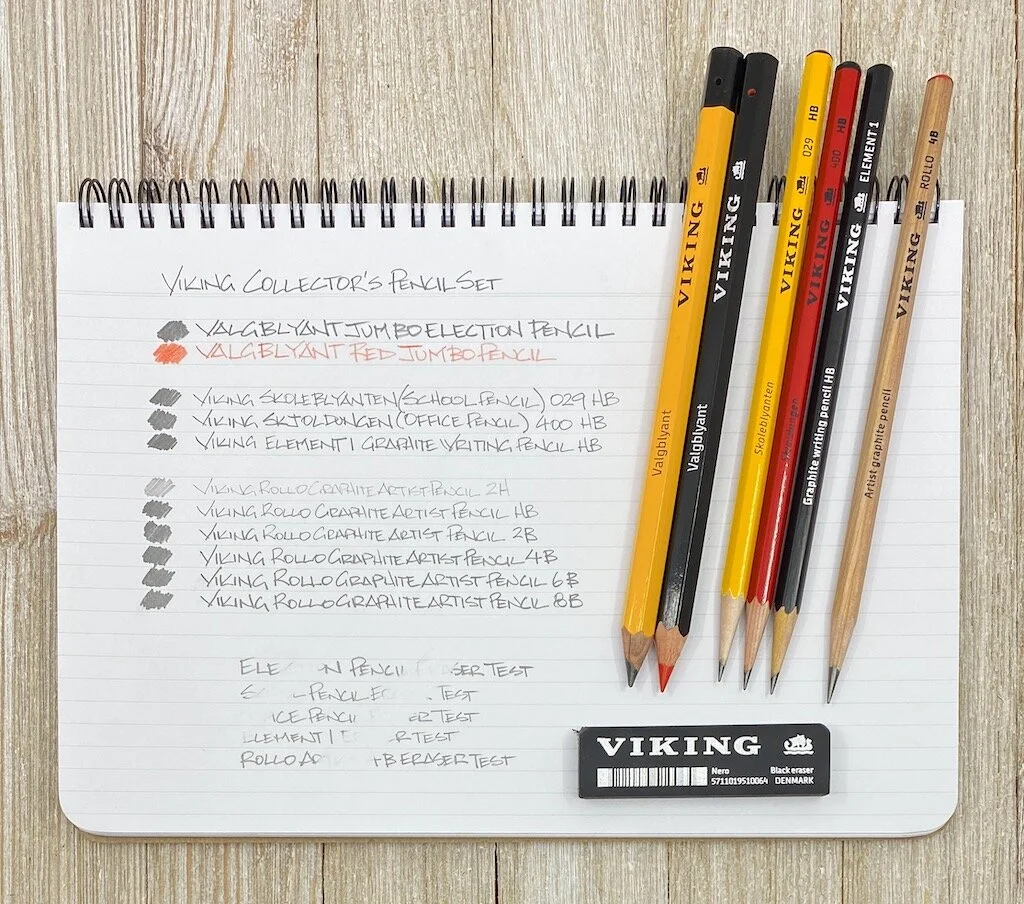 VIKING COLLECTOR'S PENCIL SET
VALGBLYANT JUMBO ELECTION PENCIL
VALGBLYANT RED JUMBO PENCIL
VIKING SKOLEBLYANTEN (SCHOOL PENCIL) 029 HB
VIKING SKJOLDUNGEN (OFFICE PENCIL) 400 HB
VIKING ELEMENT 1 GRAPHITE WRITING PENCIL HB
VIKING ROLLO GRAPHITE ARTIST PENCIL 2H
VIKING ROLLO GRAPHITE ARTIST PENCIL HB
VIKING ROLLO GRAPHITE ARTIST PENCIL 2B
VIKING ROLLO GRAPHITE ARTIST PENCIL 4B
VIKING ROLLO GRAPHITE ARTIST PENCIL 6B
VIKING ROLLO GRAPHITE ARTIST PENCIL 8B
ELE N PENCIL SER TEST
PENCIL TEST
ICE PENCIL ER TEST
ELEMENT 1 R TEST
ROLLO B ERASER TEST
Valgblyant VIKING
Valgblyant VIKING
Skoleblyanten VIKING 029 HB
VIKING 400 HB
Graphite writing pencil HB VIKING ELEMENT 1
Artist graphite pencil VIKING ROLLO 4B
VIKING
Nero Black eraser
5711019510064 DENMARK